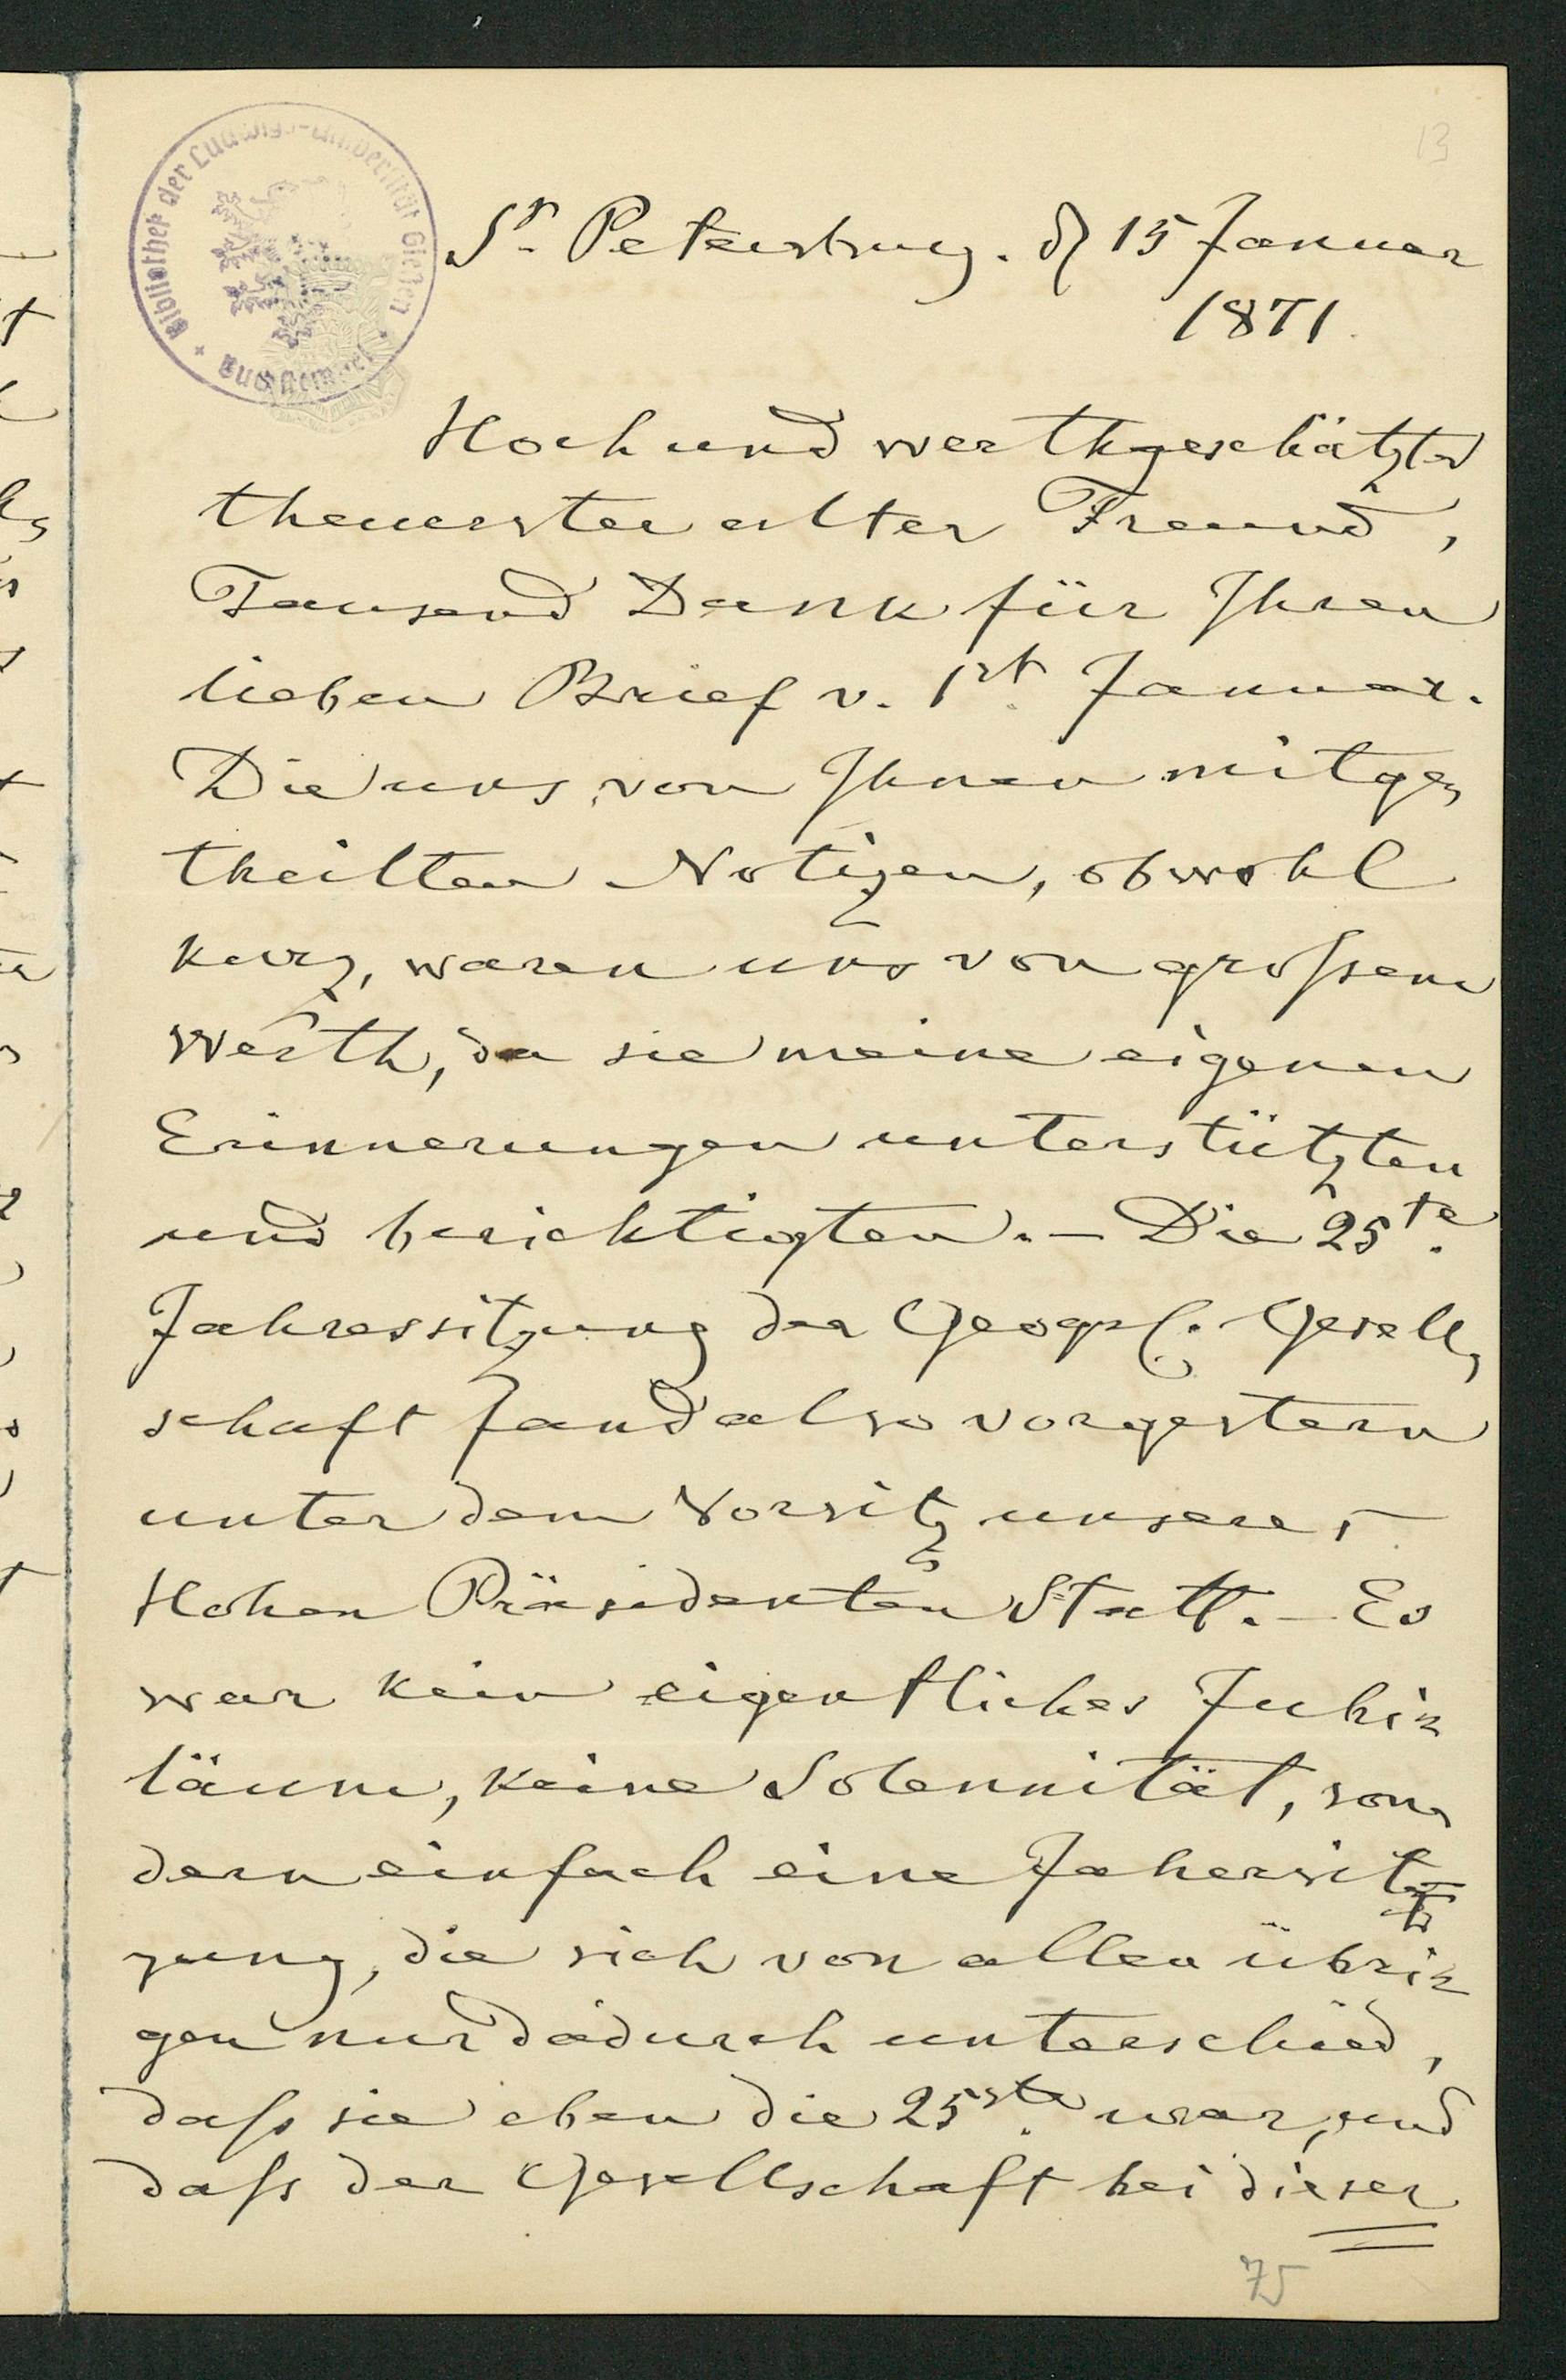 13
Bibliothek der Ludwigs-Universität Gießen
St. Petersburg. d 15 Januar
1871.
Hoch und werthgeschätzter
theuerster alter Freund,
Tausend Dank für Ihren
lieben Brief v. 1st Januar.
Die uns von Ihnen mitge-
theilten Notizen, obwohl
kurz, waren uns von großem
Werth, da sie meine eigenen
Erinnerungen unterstützten
und berichtigten. – Die 25te
Jahressitzung der Geogr. Gesell-
schaft fand also vorgestern
unter dem Vorsitz unseres
Hohen Präsidenten Statt. – Es
war kein eigentliches Jubi-
läum, keine Solennität, son-
dern einfach eine Jahersit-
zung, die sich von allen übri-
gen nur dadurch unterschied,
daß sie eben die 25ste war, und
daß der Gesellschaft bei dieser
75